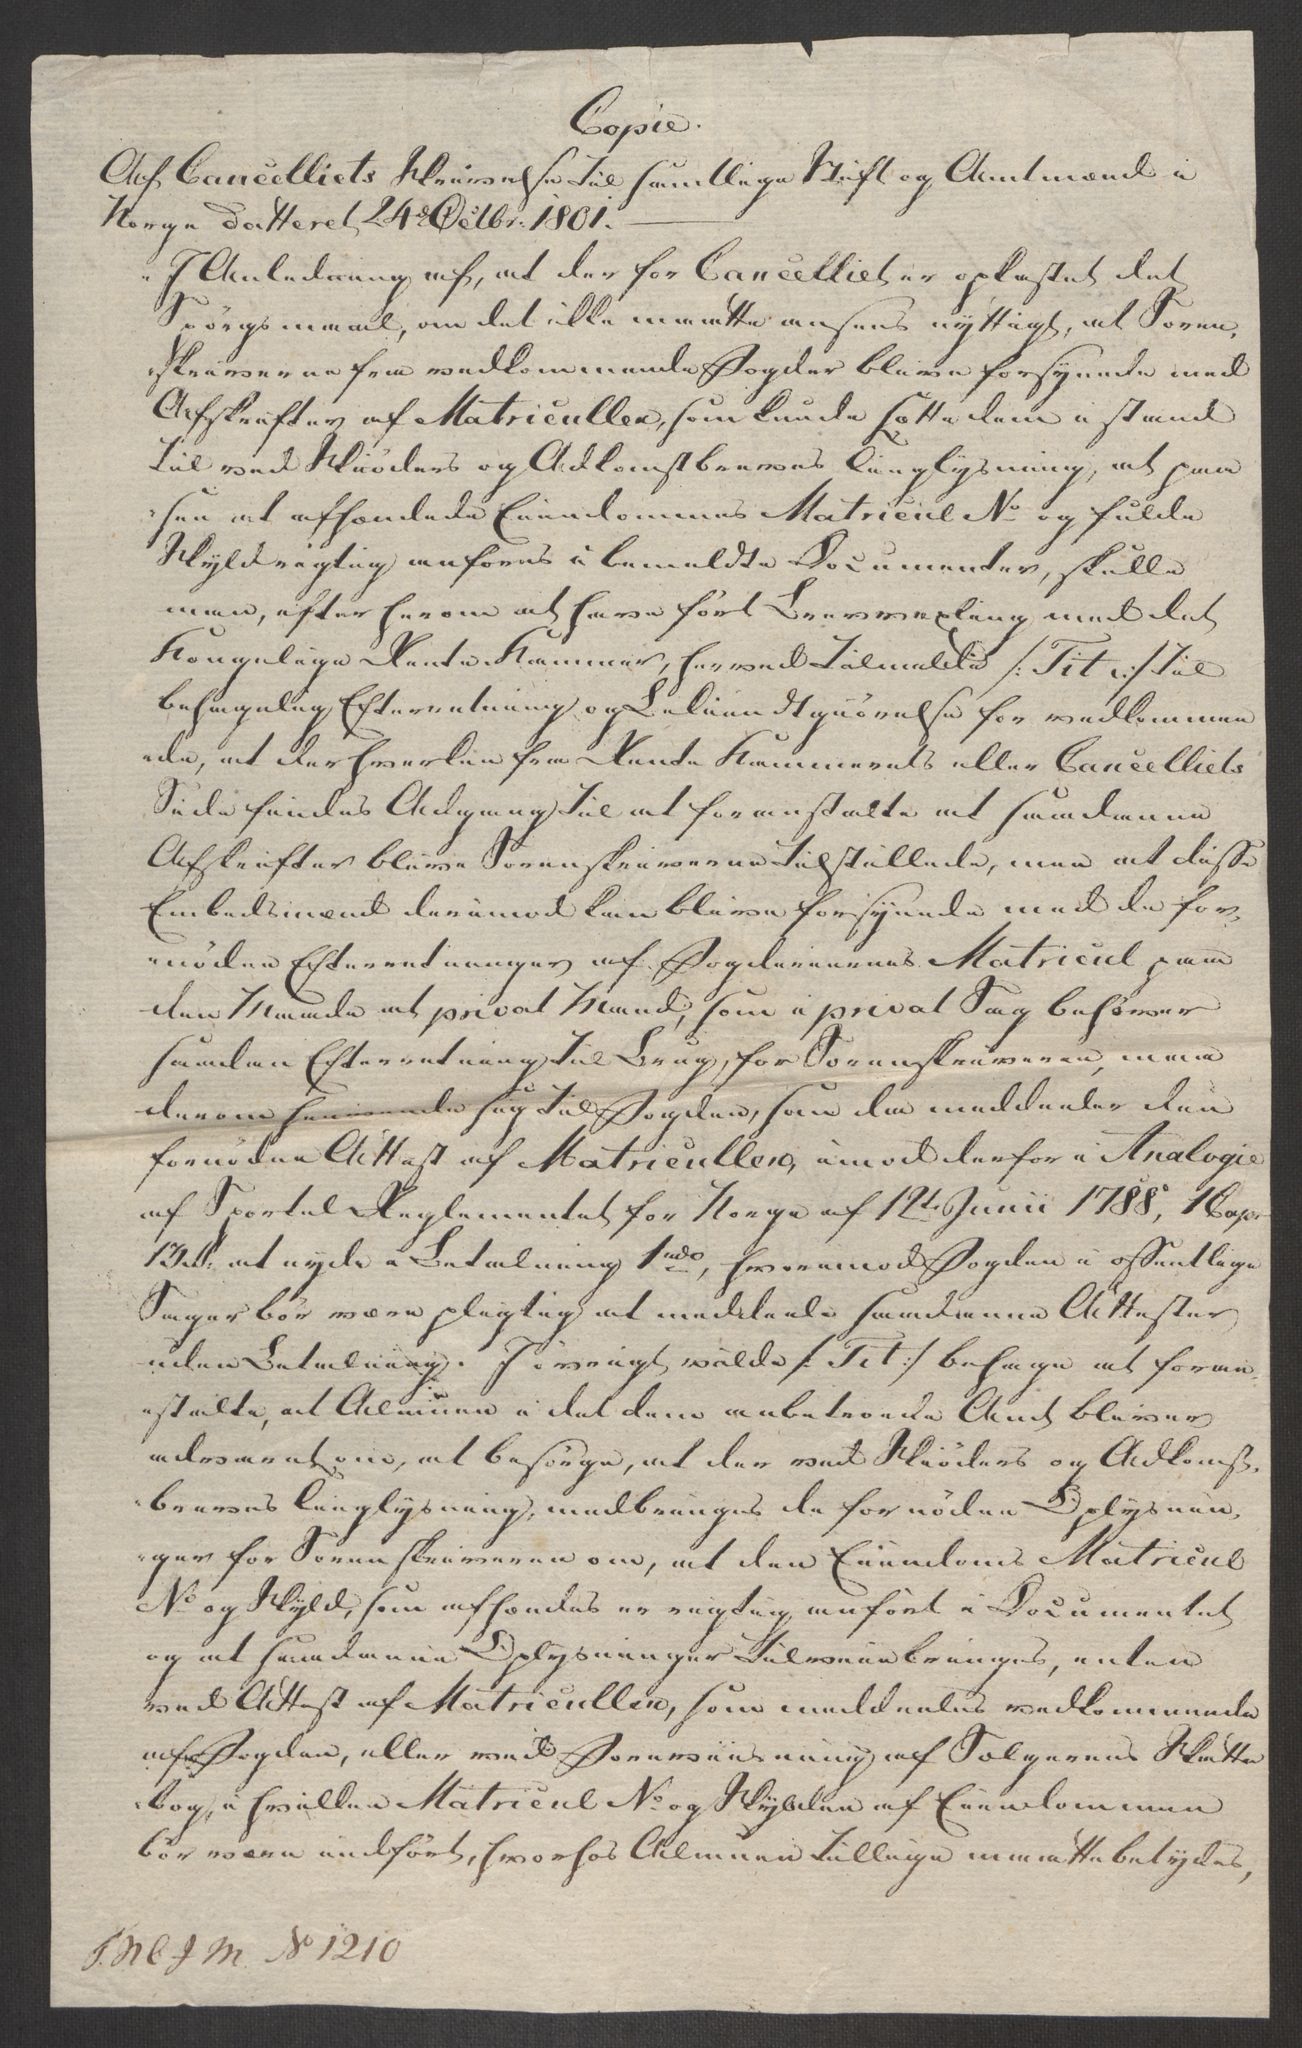 Copie.
Af Cancelliets Skrivelse til samtlige Stift og Amtmænd i
Norge datteret 24de Octbr. 1801.
I Anledning af, at der for Cancelliet er opkastet det
Spörgsmaal, om det ikke maatte ansees nyttigt, at Soren-
skriverne fra vedkommende Fogder bleve forsynede med
Afskrifter af Matricullen, som kunde sætte dem i stand
til ved Skiöders og Adkomstbreves Tinglysning, at paa
see at afhændede Eiendommes Matricul No og fulde
Skyld rigtig anføres i bemeldte Documenter, skulle
man, efter herom at have fört Brevvexling med det
Kongelige Rente Kammer, herved tilmelde /: Tit :/ til
behagelig Efterretning og Bekiendtgiörelse for vedkommen
ede, at der hverken fra Rente Kammerets eller Cancelliets
Side findes Adgang til at foranstalte at saadanne
Afskrifter blive Sorenskriverne tilstillede, men at disse
Embedsmænd derimod kan blive forsynede med de for-
nödne Efterretninger af Fogderiernes Matricul paa
den Maade at privat Mand, som i privat Sag behöver
saadan Efterretning til Brug, for Sorenskriveren, maa
derom henvende sig til Fogden, som da meddeeler den
fornödne Attest af Matricullen, imod derfor i Analogie
af Sportel Reglementet for Norge af 12te Junii 1788, 1 Cap.
13 §. at nyde i Betalning 1 ndo, hvorimod Fogden i offentlige
Sager bör være pligtig at meddeele saadanne Attester
uden Betalning. I övrigt vilde /: Tit :/ behage at foran-
stalte, at Almuen i det dem anbetroede Amt bliver
advaret om, at besörge, at der ved Skiöders og Adkomst-
breves Tinglysning, medbringes de fornödne Oplysnin-
ger for Sorenskriveren om, at den Eiendoms Matricul
No og Skyld, som afhændes er rigtig anfört i Documentet
og at saadanne Oplysninger tilveiebringes, enten
ved Attest af Matricullen, som meddeeles vedkommende
af Fogden, eller ved Foreviisning af Sælgerens Skatte
bog, i hvilken Matricul No og Skylden af Eiendommen
bör være indfört, hvorhos Almuen tillige maatte betydes,
No 1210